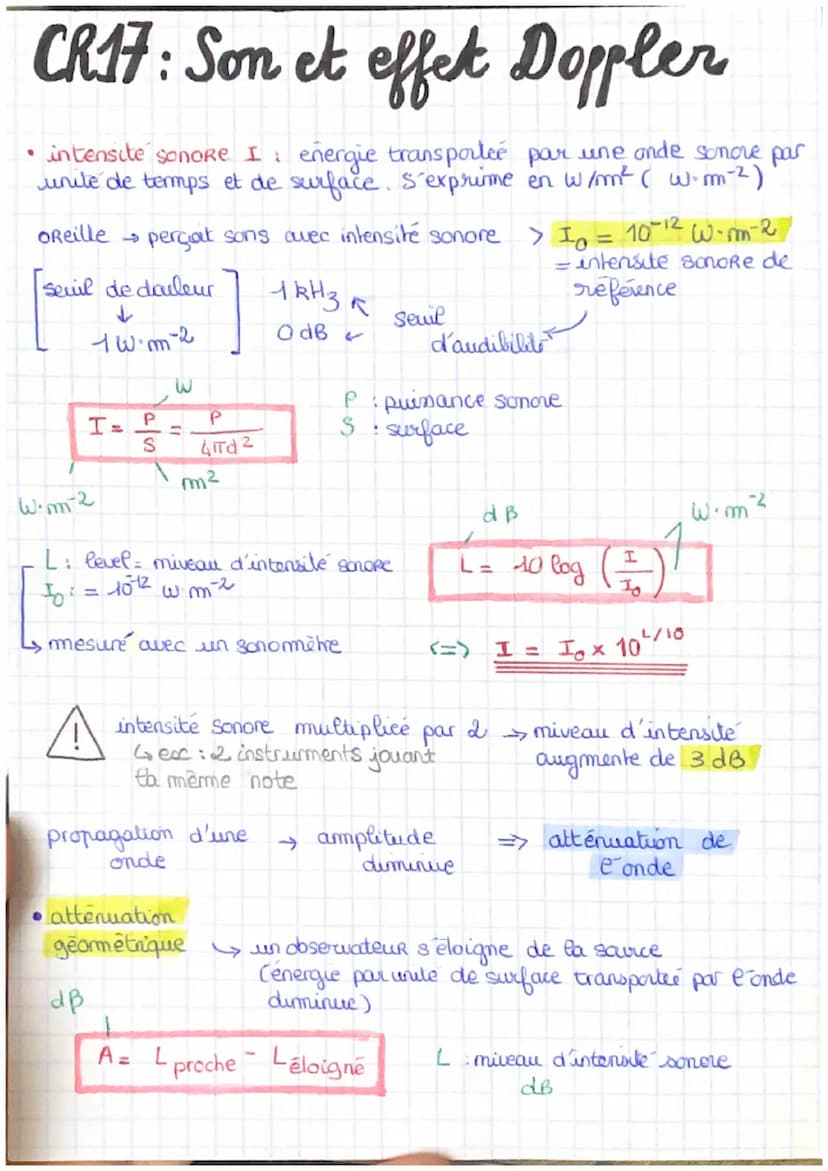 CR17 : Son et effet Doppler
• intensité sonore I : énergie transportée par une onde sonore par
unité de temps et de surface. S'exprime en W/m² ( W·m⁻²)
oreille → perçoit sons avec intensité sonore > I₀ = 10⁻¹² W·m⁻²
= intensité sonore de
référence
[seuil de douleur
↓
1 W·m⁻² ]
1 kHz
0 dB
seuil
d'audibilité
W
I = P/S = P/4πd²
m²
W·m⁻²
P : puissance sonore
S : surface
dB
W·m⁻²
L : level = niveau d'intensité sonore
I₀ : = 10⁻¹² W m⁻²
↳ mesuré avec un sonomètre
L = 10 log (I/I₀)
<=> I = I₀ × 10^L/10
! intensité sonore multipliée par 2 → niveau d'intensité
augmente de 3 dB
↳ ex : 2 instruments jouant
la même note
propagation d'une → amplitude => atténuation de
onde diminue l'onde
• atténuation
géométrique ↳ un observateur s'éloigne de la source
(énergie par unité de surface transportée par l'onde
diminue)
dB
A = L proche - L éloigné
L : niveau d'intensité sonore
dB